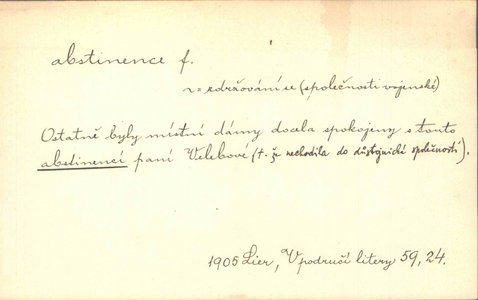 abstinence f.
v= zdržování se (společnosti vojenské)
Ostatně byly místní dámy docela spokojeny s touto
abstinencí paní Velebové (t. že nechodila do důstojnické společnosti).
1905 Lier, V područí litery 59, 24.